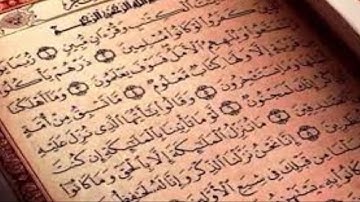 الكتب وقرءان مبين ربما
كفروا لو كانوا مسلمين ذرهم يأكلوا
ويلههم الأمل فسوف يعلمون وما أهلكنا
قرية إلا ولها كتاب معلوم ما تسبق من أمة
وما يستـٔخرون وقالوا يأيها الذى نزل عليه
لمجنون لو ما تأتينا بالملـٰئكة إن كنت
ما ننزل الملـٰئكة إلا بالحق وما كانوا
إنا نحن نزلنا الذكر وإنا له لحـٰفظون
من قبلك فى شيع الأولين